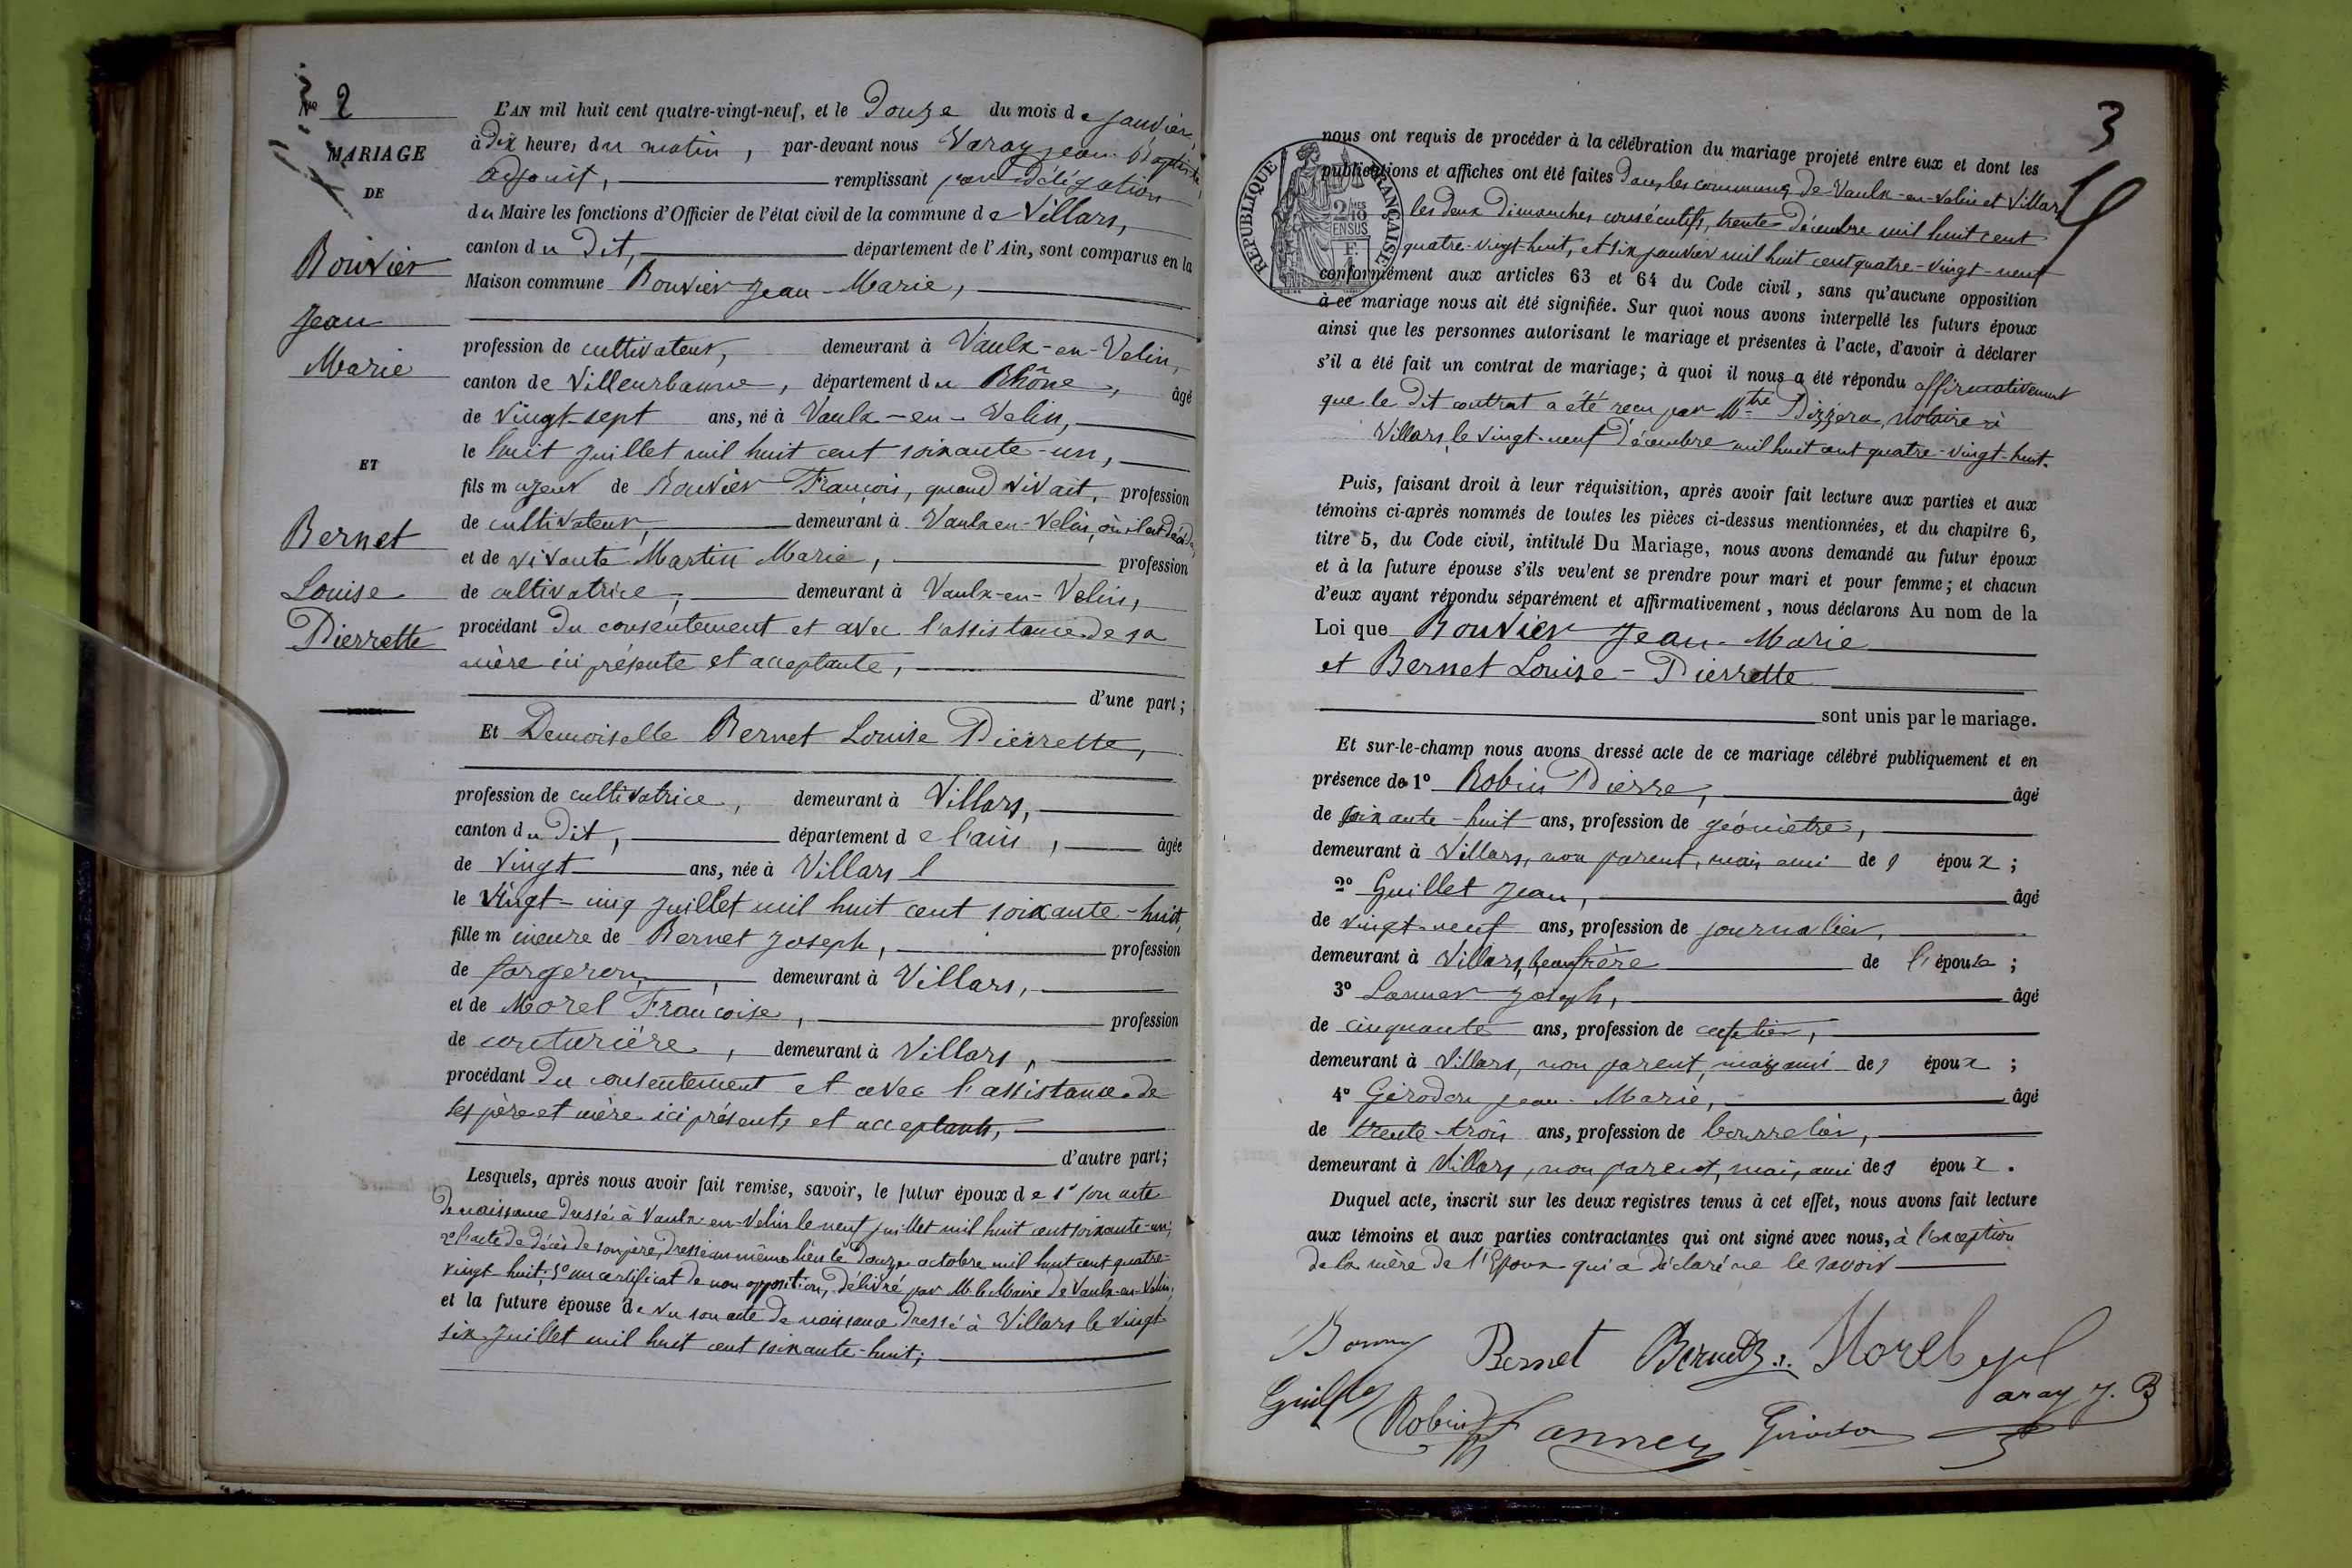 No 2
MARIAGE
DE
Bouvier
Jean
Marie
ET
Bernet
Louise
Pierrette
L'AN mil huit cent quatre-vingt-neuf, et le Douze du mois de janvier,
à Dix heures du matin, par-devant nous Varay jean-Baptiste,
adjoint, remplissant par délégation
du Maire les fonctions d'Officier de l'état civil de la commune de Villars,
canton du Dit, département de l'Ain, sont comparus en la
Maison commune Bouvier Jean-Marie,
profession de cultivateur, demeurant à Vaulx-en-Velin,
canton de Villeurbanne, département du Rhône, âgé
de vingt-sept ans, né à Vaulx-en-Velin,
le huit juillet mil huit cent soixante-un,
fils majeur de Bouvier François, quand vivait, profession
de cultivateur, demeurant à Vaulx-en-Velin, où il est décédé,
et de vivante Martin Marie, profession
de cultivatrice, demeurant à Vaulx-en-Velin,
procédant du consentement et avec l'assistance de sa
mère ici présente et acceptante,
d'une part;
Et Demoiselle Bernet Louise Pierrette,
profession de cultivatrice, demeurant à Villars,
canton du Dit, département de l'ain, âgée
de vingt ans, née à Villars
le vingt-cinq juillet mil huit cent soixante-huit,
fille mineure de Bernet Joseph, profession
de forgeron, demeurant à Villars,
et de Morel Françoise, profession
de couturière, demeurant à Villars,
procédant du consentement et avec l'assistance de
ses père et mère ici présents et acceptants,
d'autre part;
Lesquels, après nous avoir fait remise, savoir, le futur époux de 1° son acte
de naissance dressé à Vaulx-en-Velin le neuf juillet mil huit cent soixante-un;
2° l'acte de décès de son père, dressé au même lieu le douze octobre mil huit cent quatre-
vingt-huit; 3° un certificat de non opposition, délivré par M. le Maire de Vaulx-en-Velin;
et la future épouse de vu son acte de naissance dressé à Villars le vingt-
six juillet mil huit cent soixante-huit;
3
RÉPUBLIQUE FRANÇAISE
nous ont requis de procéder à la célébration du mariage projeté entre eux et dont les
publications et affiches ont été faites dans les communes de Vaulx-en-Velin et Villars
les deux dimanches consécutifs, trente décembre mil huit cent
quatre-vingt-huit, et six janvier mil huit cent quatre-vingt-neuf
conformément aux articles 63 et 64 du Code civil, sans qu'aucune opposition
à ce mariage nous ait été signifiée. Sur quoi nous avons interpellé les futurs époux
ainsi que les personnes autorisant le mariage et présentes à l'acte, d'avoir à déclarer
s'il a été fait un contrat de mariage; à quoi il nous a été répondu affirmativement
que le dit contrat a été reçu par Mtre Dizzera, notaire à
Villars, le vingt-neuf Décembre mil huit cent quatre-vingt-huit.
Puis, faisant droit à leur réquisition, après avoir fait lecture aux parties et aux
témoins ci-après nommés de toutes les pièces ci-dessus mentionnées, et du chapitre 6,
titre 5, du Code civil, intitulé Du Mariage, nous avons demandé au futur époux
et à la future épouse s'ils veulent se prendre pour mari et pour femme; et chacun
d'eux ayant répondu séparément et affirmativement, nous déclarons Au nom de la
Loi que Bouvier Jean-Marie
et Bernet Louise-Pierrette
sont unis par le mariage.
Et sur-le-champ nous avons dressé acte de ce mariage célébré publiquement et en
présence de 1° Robin Pierre, âgé
de soixante-huit ans, profession de géomètre,
demeurant à Villars, non parent, mais ami des époux;
2° Guillet Jean, âgé
de vingt-neuf ans, profession de journalier,
demeurant à Villars, beau frère de l'épouse;
3° Lanner Joseph, âgé
de cinquante ans, profession de
demeurant à Villars, non parent, mais ami des époux;
4° Girodon jean-Marie, âgé
de trente-trois ans, profession de bourrelier,
demeurant à Villars, non parent, mais ami des époux.
Duquel acte, inscrit sur les deux registres tenus à cet effet, nous avons fait lecture
aux témoins et aux parties contractantes qui ont signé avec nous, à l'exception
de la mère de l'Epoux qui a déclaré ne le savoir
Bernet Morel
Robin Lanner Girodon Varay J. B